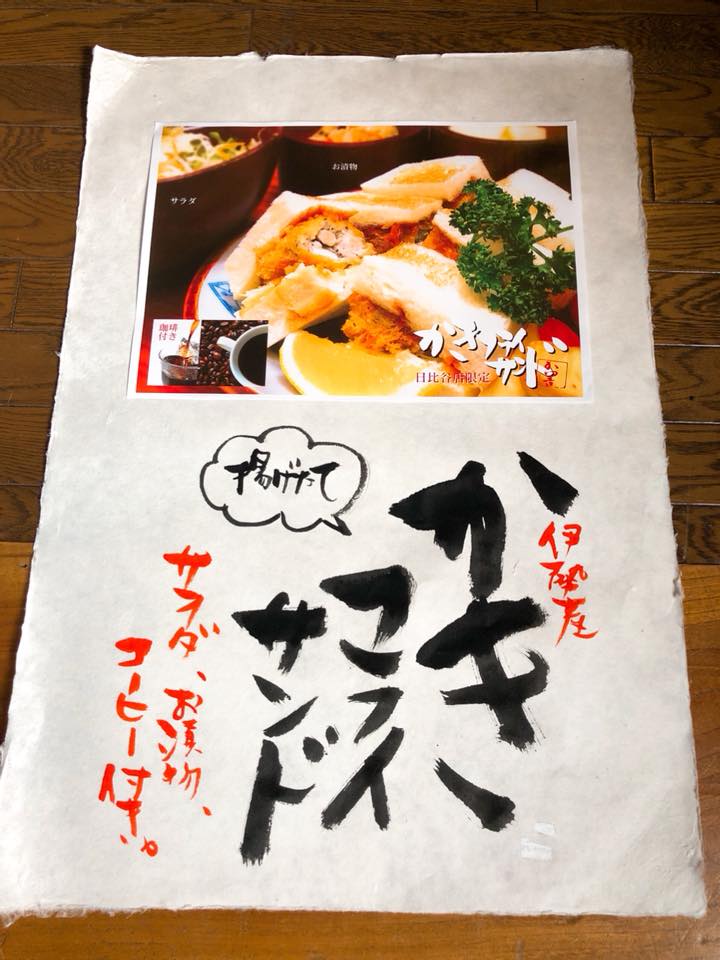 サラダ
お漬物
珈琲
付き
かきフライ
サンド
日比谷店限定
伊勢産
かき
フライ
サンド
揚げたて
サラダ、お漬物、
コーヒー付き。